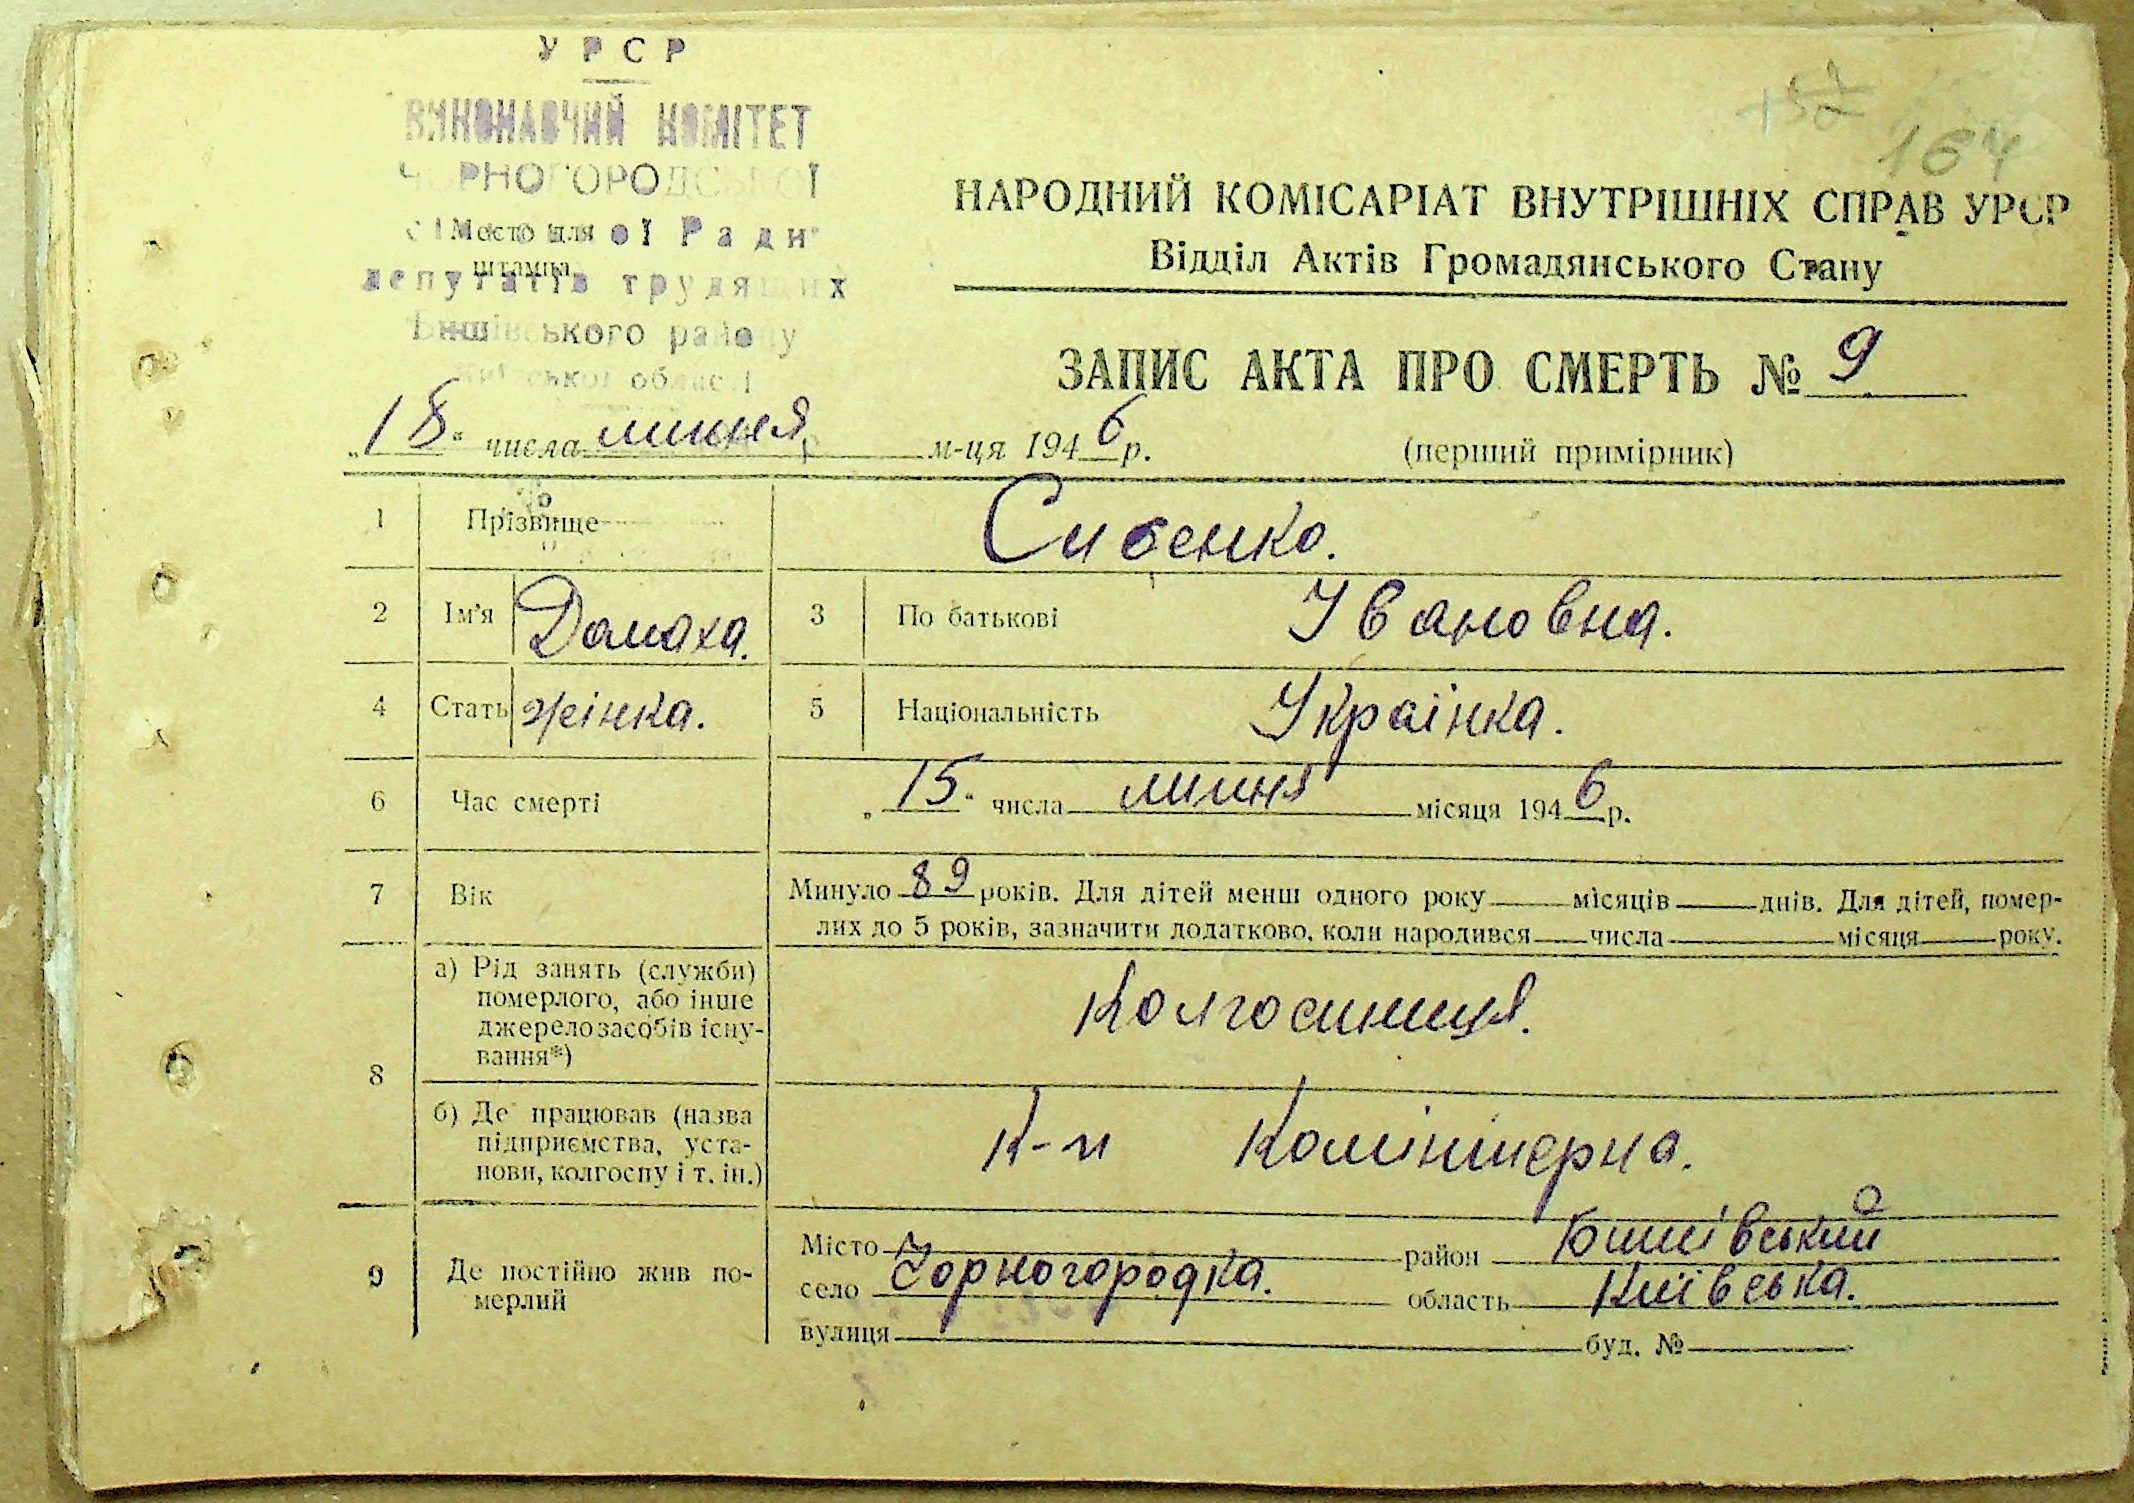 УРСР
ВИКОНАВЧИЙ КОМІТЕТ
ЧОРНОГОРОДСЬКОЇ
Місце для ої Ради
штампа
депутатів трудящих
Бишівського району
Київської області
157
164
НАРОДНИЙ КОМІСАРІАТ ВНУТРІШНІХ СПРАВ УРСР
Відділ Актів Громадянського Стану
ЗАПИС АКТА ПРО СМЕРТЬ № 9
„18“ числа липня м-ця 1946 р.
(перший примірник)
1 Прізвище Сибенко.
2 Ім'я Домаха. 3 По батькові Івановна.
4 Стать жінка. 5 Національність Українка.
6 Час смерті „15“ числа липня місяця 1946 р.
7 Вік Минуло 89 років. Для дітей менш одного року місяців днів. Для дітей, помер-
лих до 5 років, зазначити додатково, коли народився числа місяця року.
8 а) Рід занять (служби)
померлого, або інше
джерело засобів існу-
вання*)
Колгоспниця.
б) Де працював (назва
підприємства, уста-
нови, колгоспу і т. ін.)
К-п Комінтерна.
9 Де постійно жив по-
мерлий
Місто район Бишівський
село Чорногородка. область Київська.
вулиця буд. №